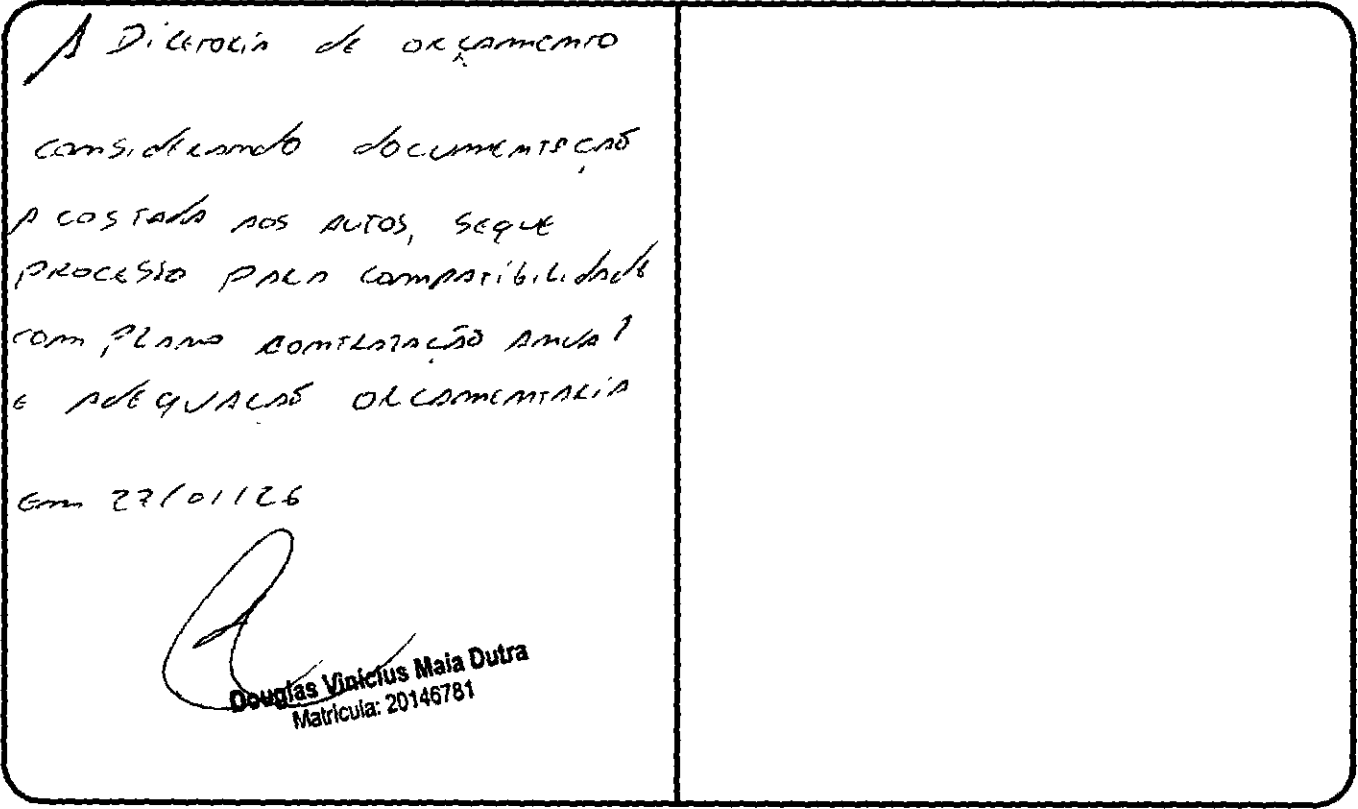 A Diretoria de orçamento
considerando documentação
acostada aos autos, segue
processo para compatibilidade
com plano contratação anual
e adequação orçamentaria
Em 27/01/26
Douglas Vinicius Maia Dutra
Matrícula: 20146781